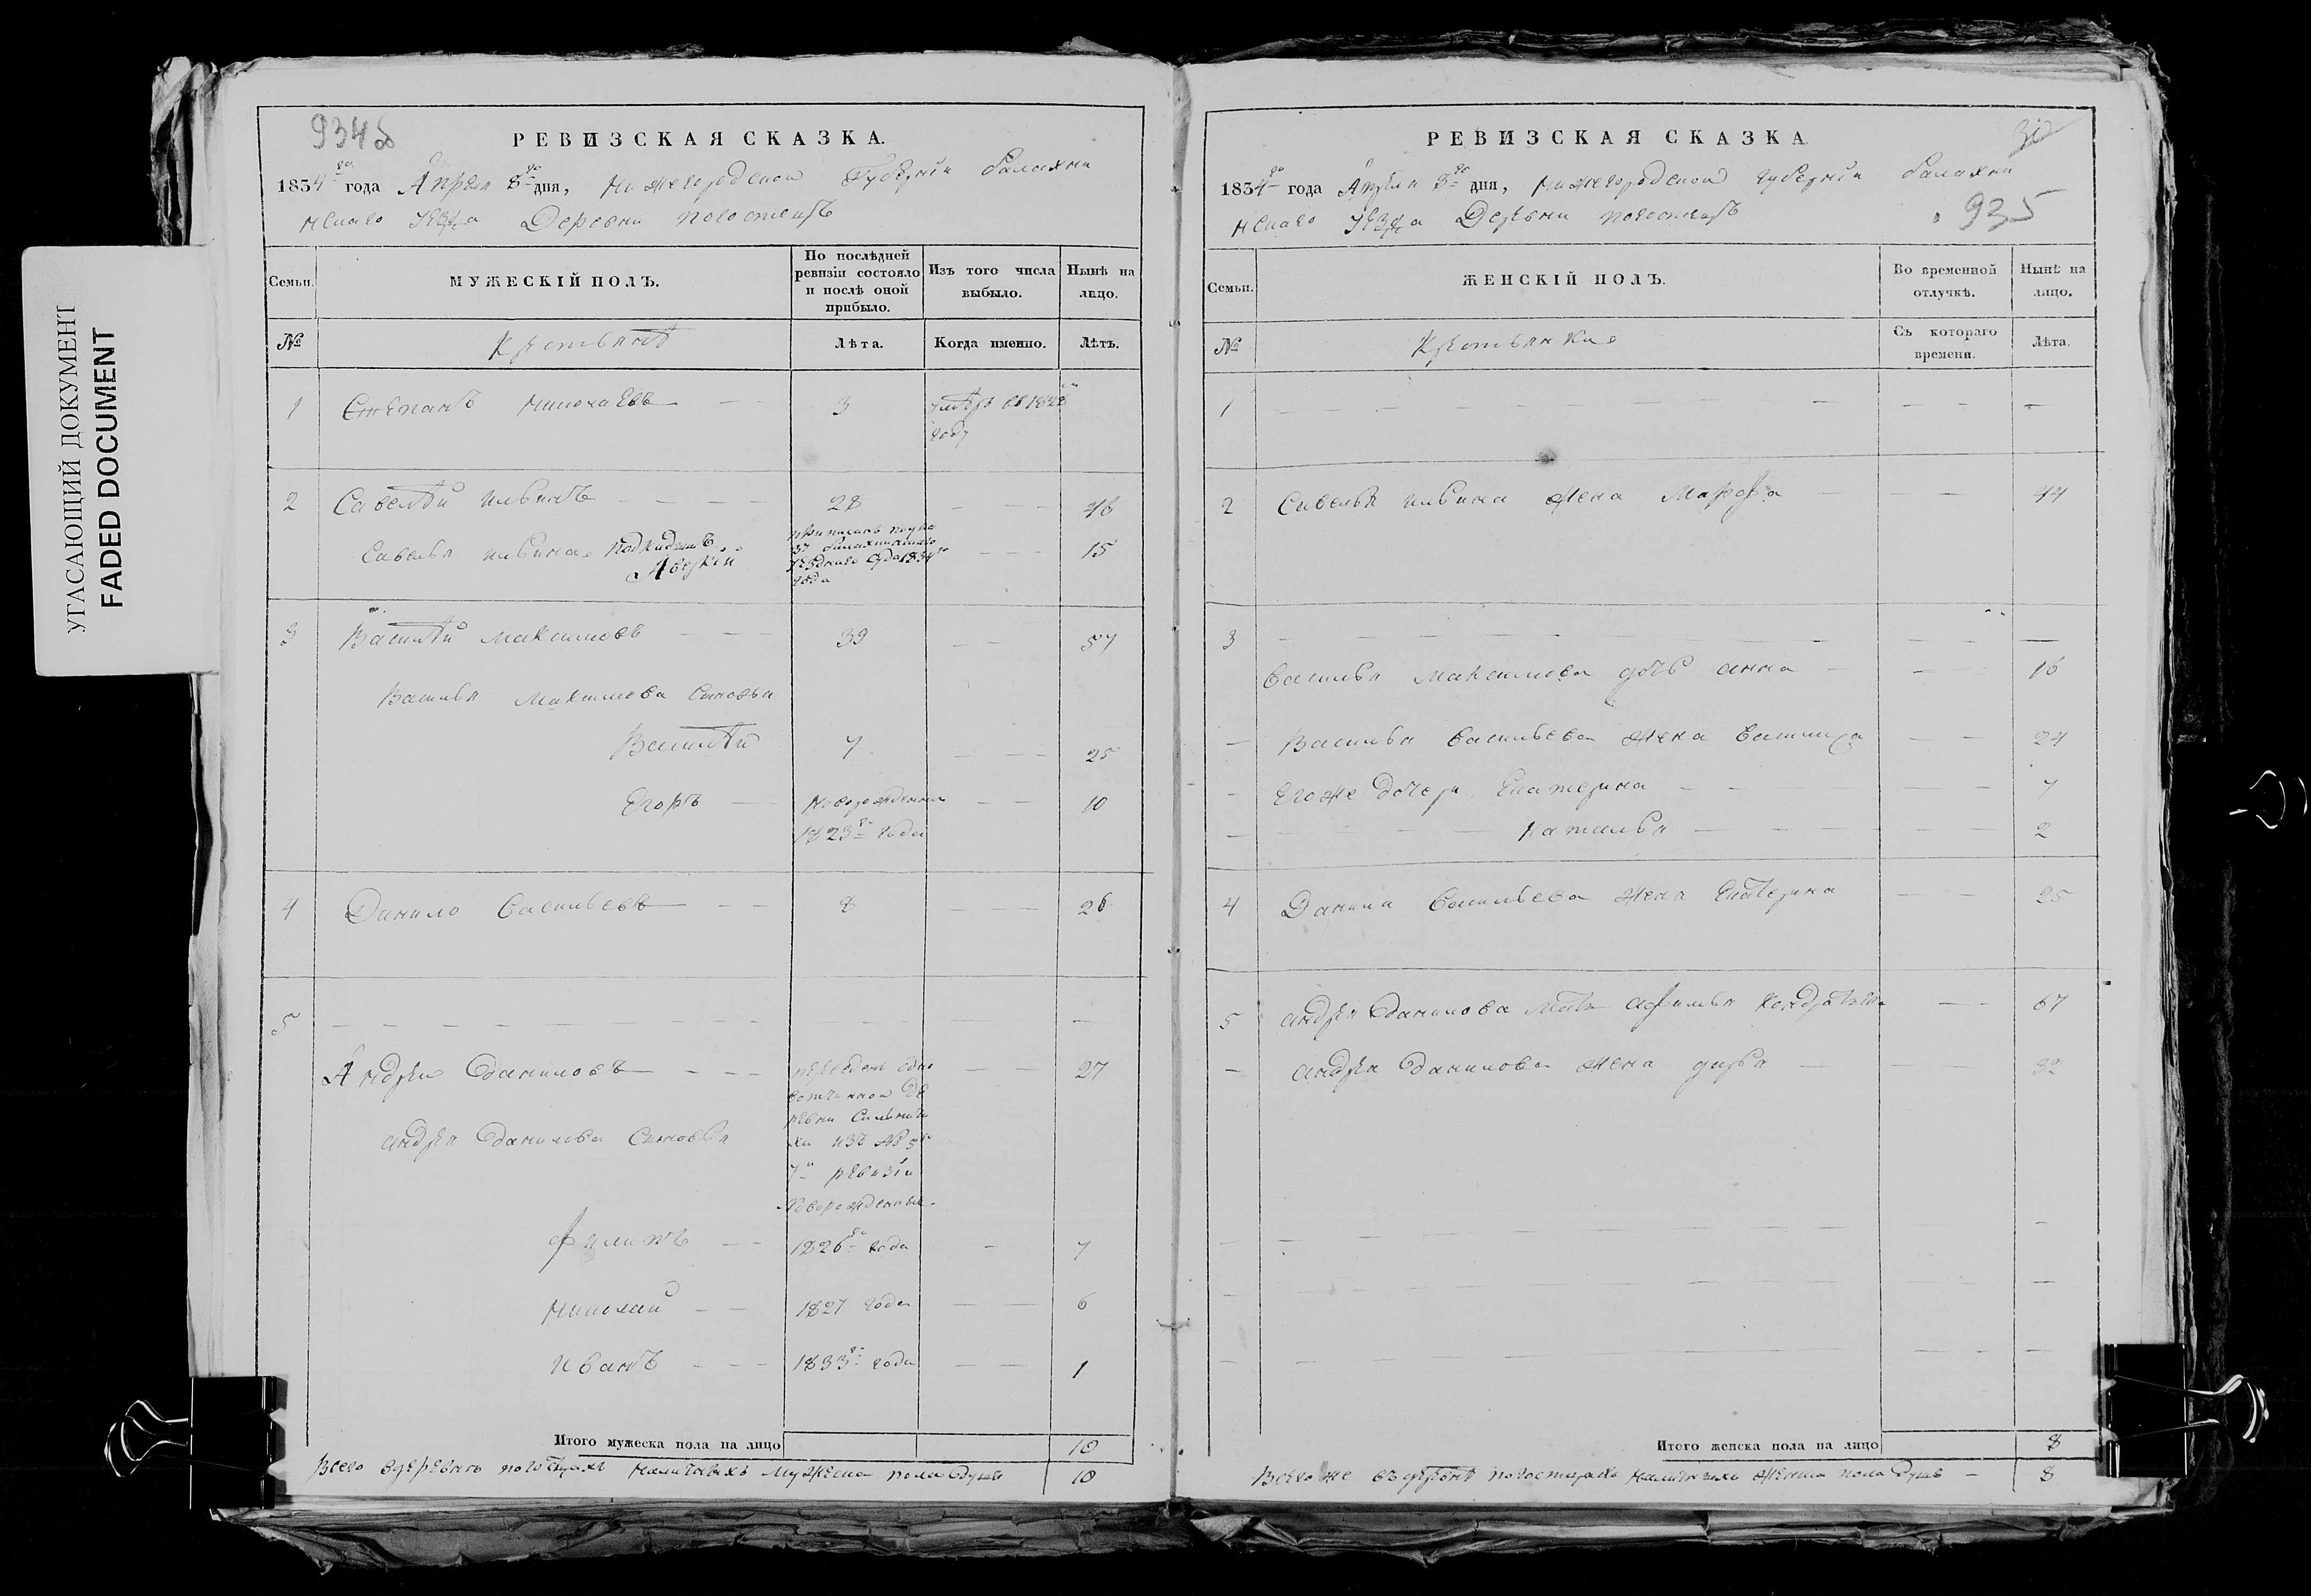 УГАСАЮЩИЙ ДОКУМЕНТ
FADED DOCUMENT
934 об
РЕВИЗСКАЯ СКАЗКА.
1834го года Апреля 8го дня, Нижегородской Губернiи балахни
нскаго уезда Деревни погостицъ
Семьи.
МУЖЕСКIЙ ПОЛЪ.
По послѣдней ревизiи состояло и послѣ оной прибыло.
Изъ того числа выбыло.
Нынѣ на лицо.
№
Крестьянѣ
Лѣта.
Когда именно.
Лѣтъ.
1 Степанъ николаевъ 3 умѣръ въ 1828м
году
2 Савелѣй ильинъ 28 46
Савелья ильина подкидышъ
Аверкiй
приписанъ по ука
зу балахнинскаго
уезднаго суда 1834го
года
15
3 Василѣй Максимовъ 39 57
Василья Максимова Сыновья
Василѣй 7 25
Егоръ Новорожденный 10
1823го года
4 Данило Васильевъ 8 26
5
Андрей Даниловъ переведен одно 27
вотчинной де
ревни
Андрея Данилова Сыновья
хи изъ № 5го
7й ревизiи
Новорожденные
Филипъ 1826го года 7
Николай 1827 года 6
Иванъ 1833го года 1
Итого мужеска пола на лицо 10
Всего вдеревнѣ погостицахъ наличныхъ мужеска пола душъ 10
РЕВИЗСКАЯ СКАЗКА
1834го года Апреля 8го дня, нижегородской губернiи балахни
нскаго уезда Деревни погостицъ
935
Семьи.
ЖЕНСКIЙ ПОЛЪ.
Во временной отлучкѣ.
Нынѣ на лицо.
№
Крестьянки
Съ котораго времени.
Лѣта.
1
2 Савелья ильина жена Марфа 44
3
Василья Максимова дочь анна 16
Василья Васильева жена Василиса 24
Егоже дочери Екатерина 7
Наталья 2
4 Данилы Васильева жена Екатерина 25
5 Андрея Данилова мать афимья Кондратьева 67
Андрея Данилова жена дарья 32
Итого женска пола на лицо 8
Всего же въ деревнѣ погостицахъ наличныхъ женска пола душъ 8